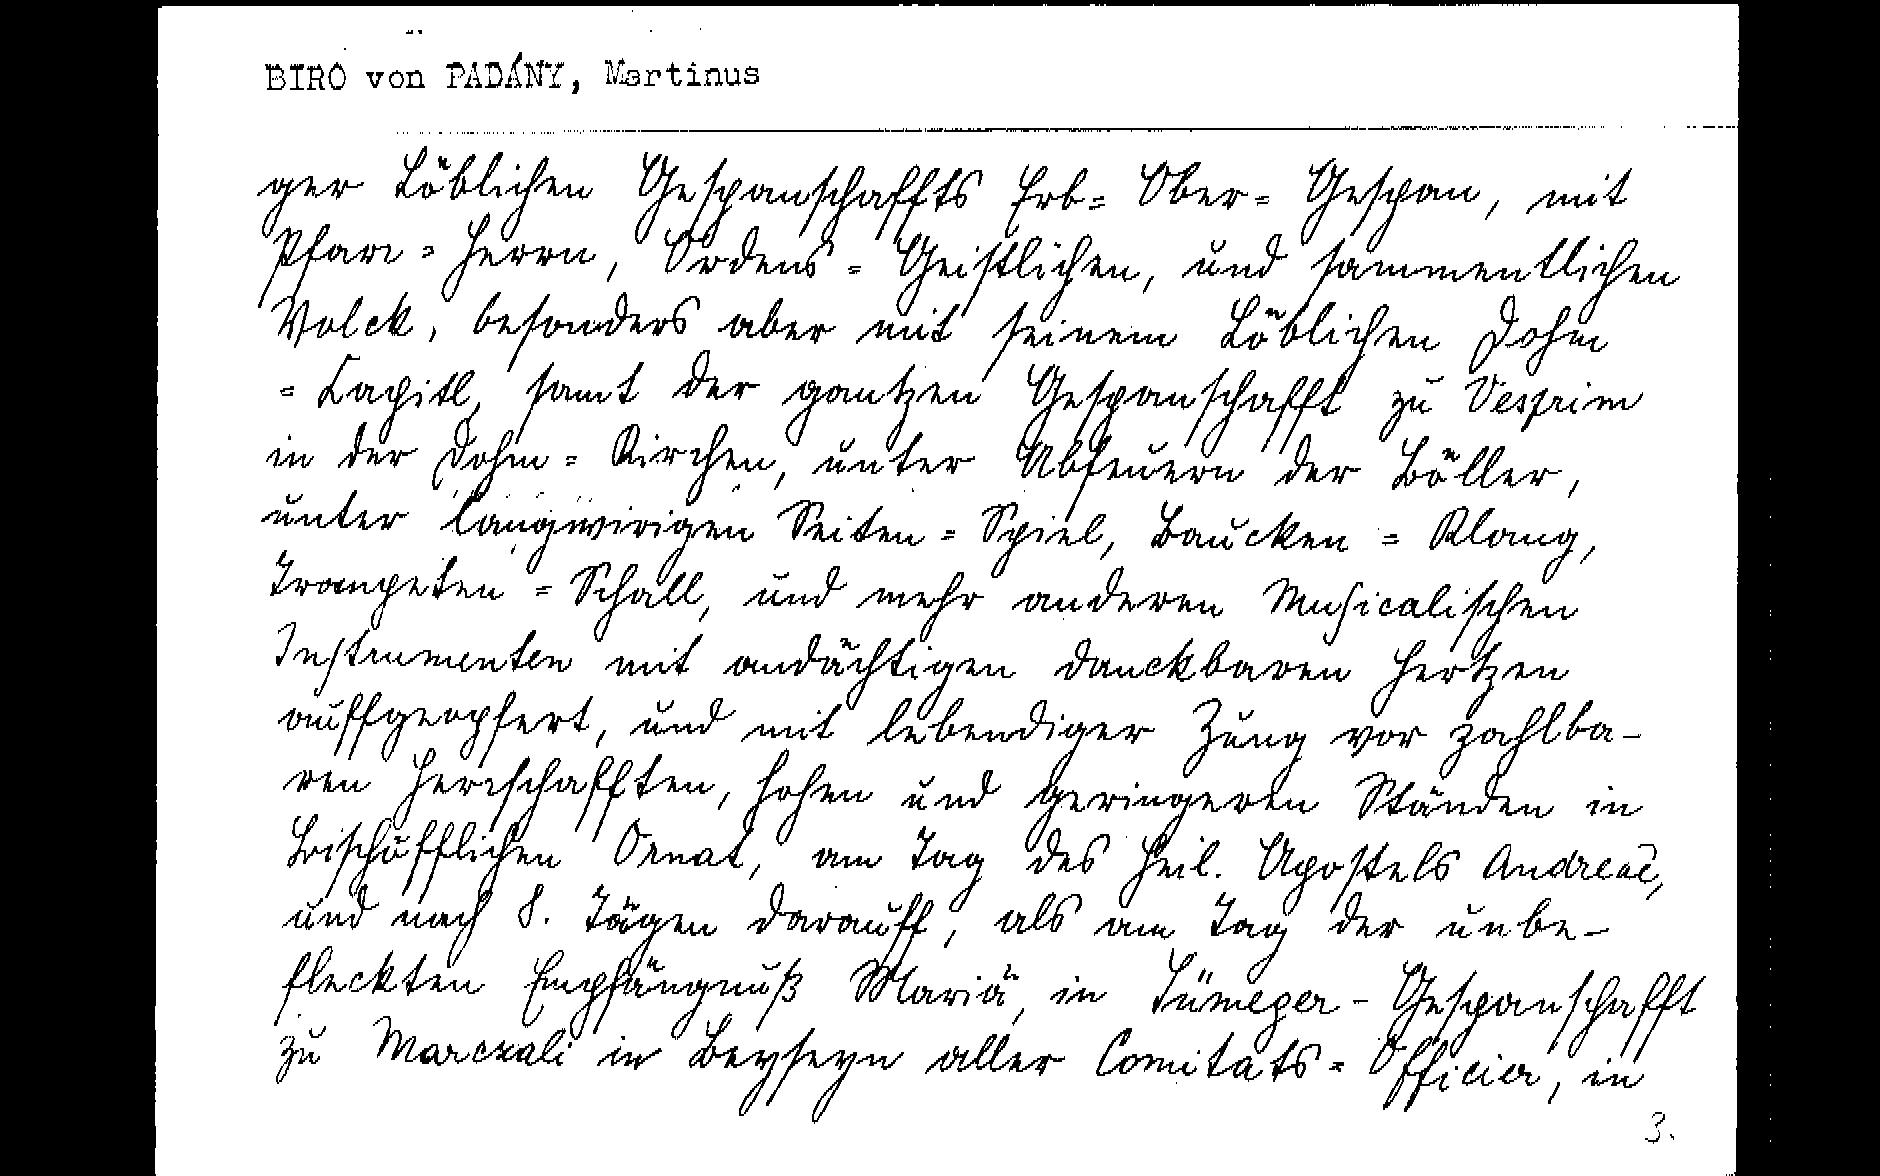 BIRO von PADÁNY, Martinus
ger Löblichen Gespanschaffts Erb= Ober= Gespan, mit
Pfarr=Herrn, Ordens=Geistlichen, und sammentlichen
Volck, besonders aber mit seinem Löblichen Dohm
=Capitl, samt der gantzen Gespanschafft zu Vesprim
in der Dohm=Kirchen, unter Abfeuern der Böller,
unter langwirigen Seiten=Spiel, Baucken=Klang,
Trompeten=Schall, und mehr anderen Musicalischen
Instrumenten mit andächtigen danckbaren Hertzen
auffgeopfert, und mit lebendiger Zung vor zahlba-
ren Herrschafften, hohen und geringeren Ständen in
Bischöfflichen Ornat, am Tag des Heil. Apostels Andreae,
und nach 8. Tägen darauff, als am Tag der unbe-
fleckten Empfängnuß Mariä, in Sümeger-Gespanschafft
zu Marczali in Beyseyn aller Comitats=Officier, in
3.